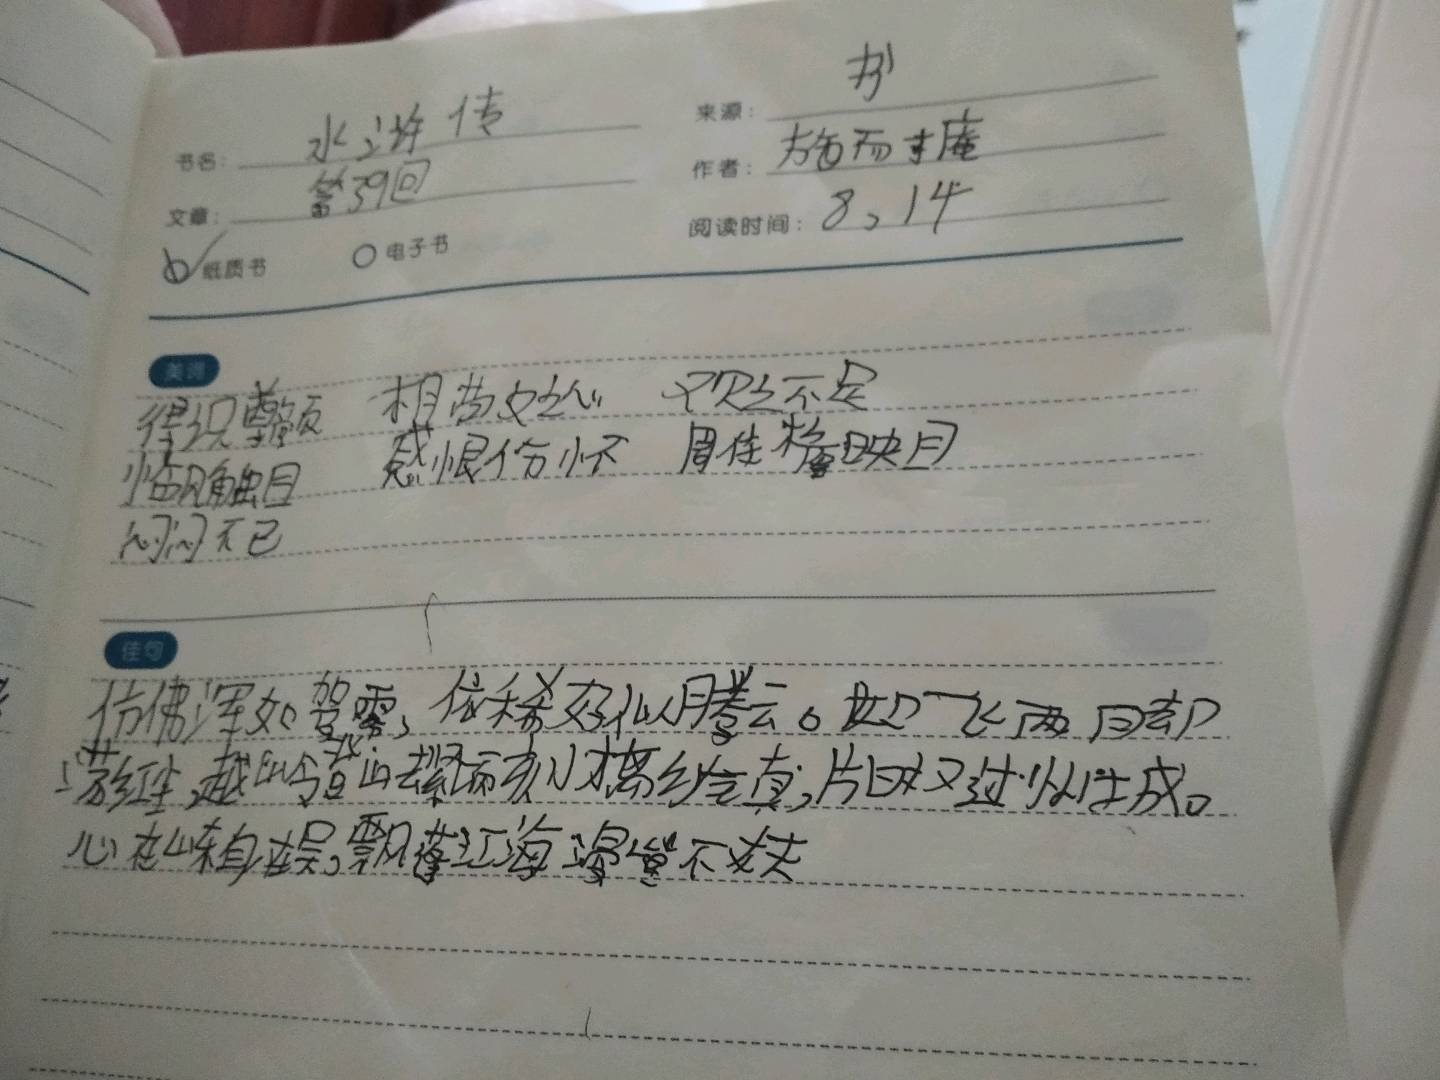 书名: 水浒传
来源: 书
文章: 第39回
作者: 施而寸庵
纸质书 电子书
阅读时间: 8,14
美词
得识尊颜 相劳 不足
临风触目 感恨伤怀 眉佳 映目
闷闷不已
佳句
仿佛浑如驾雾,依稀好似腾云。如飞两脚
荡红尘,越岭登山去紧而 片时又过 成。
心在山东身在吴,飘蓬江海谩 不丈夫